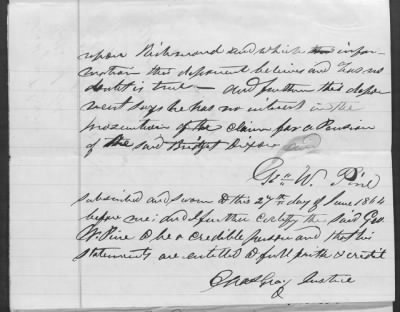 upon Richmond and which infor-
mation this deponent believes and has no
doubt is true — And further this depo-
nent says he has no interest in the
prosecution of the claim for a Pension
of the said Bridget Dixon
Geo W. Pine
subscribed and sworn to this 27th day of June 1864
before me: and I further certify the said Geo
W. Pine to be a credible person and that his
statements are entitled to full faith & credit
Chas Gray Justice